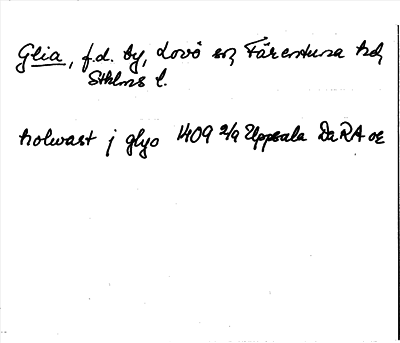 Glia, f.d. by, Lovö sn, Färentuna hd,
Sthlms l.
holwast j glyo 1409 2/9 Uppsala DaRA or